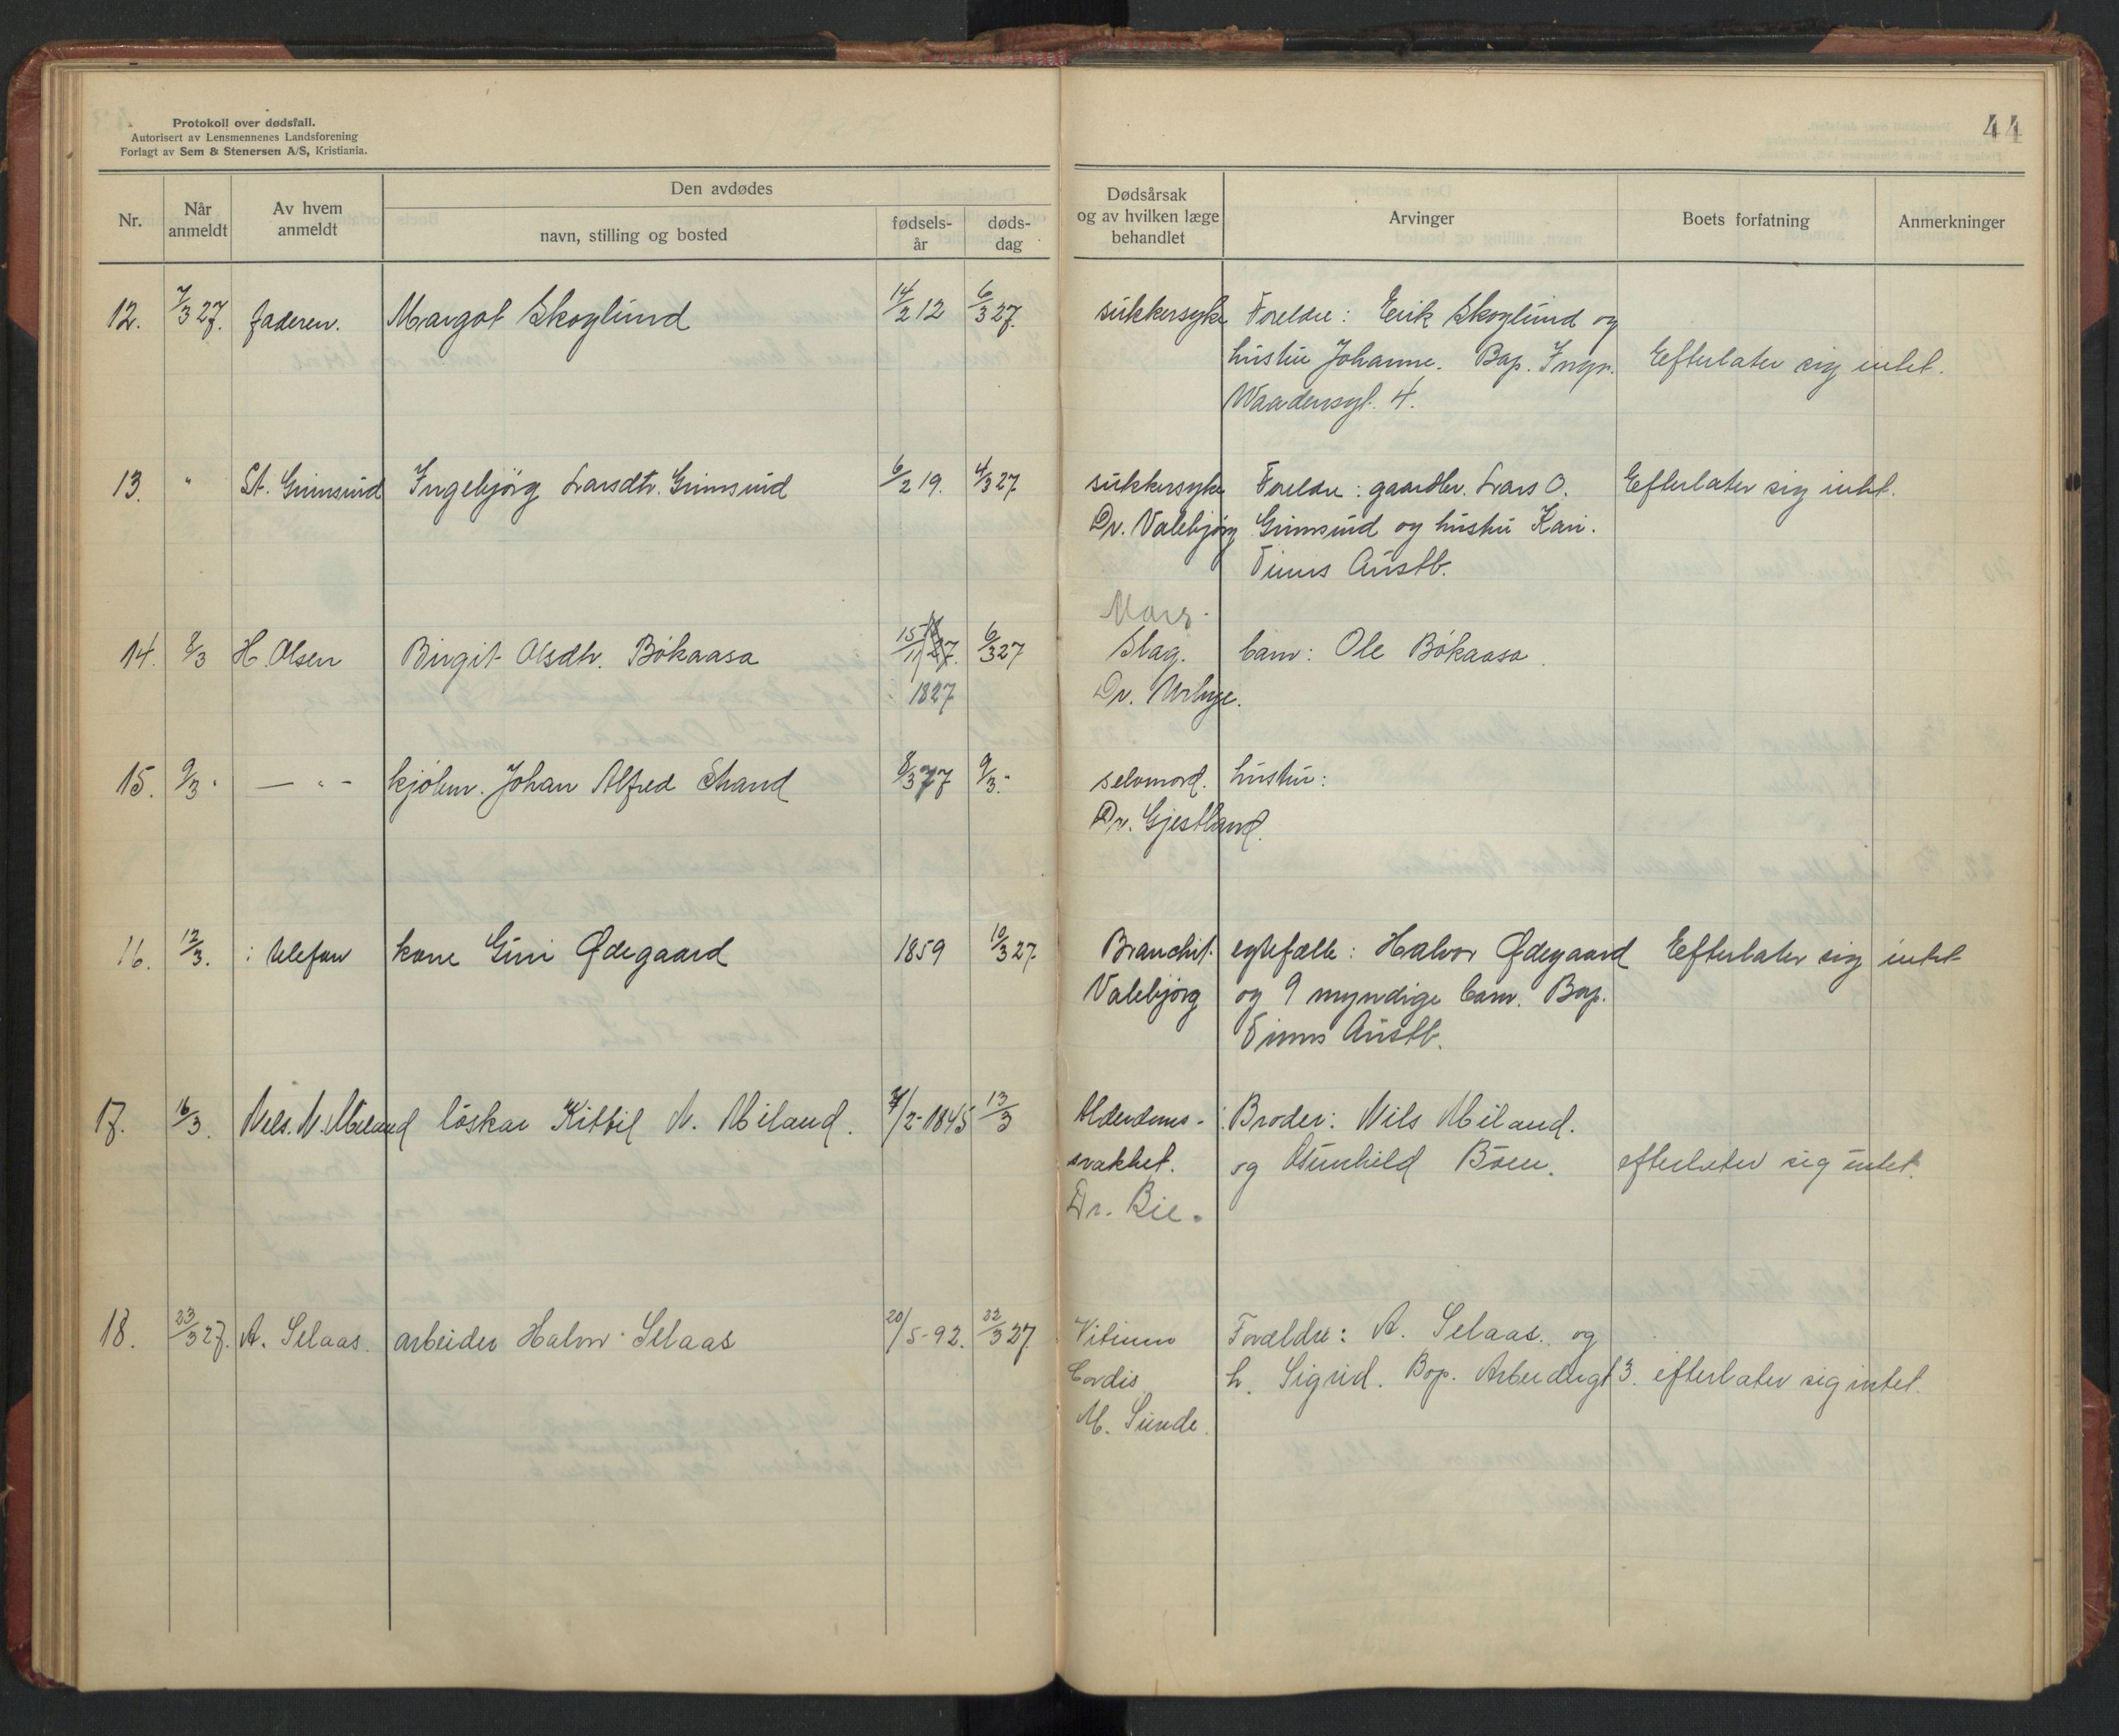 Protokoll over dødsfall.
Autorisert av Lensmennenes Landsforening
Forlagt av Sem & Stenersen A/S, Kristiania.
44
Nr.
Når anmeldt
Av hvem anmeldt
Den avdødes
navn, stilling og bosted
fødsels-år
døds-dag
Dødsårsak og av hvilken læge behandlet
Arvinger
Boets forfatning
Anmerkninger
12. 7/3 27. faderen. Margot Skoglund 14/2 12 6/3 27. sukkersyke Foreldre: Erik Skoglund og
hustru Johanne. Bop. Ingv. Efterlater sig intet.
Waadensgt. 4.
13. " St. Grimsrud Ingebjörg Larsdtr. Grimsrud 6/2 19. 4/3 27 sukkersyke Foreldre: gaardbr. Lars O. Efterlater sig intet.
Dr. Valebjörg Grimsrud og hustru Kari.
Tinns Austb.
Mors-
14. 8/3 H. Olsen Birgit Olsdtr. Bökaasa 15/11 27. 6/3 27 Slag. barn: Ole Bökaasa.
1827 Dr.
15. 9/3 " — " — kjölm. Johan Alfred Strand 8/3 77 9/3 " selvmord. hustru:
Dr. Gjestland.
16. 12/3. i telefon kone Guri Ødegaard 1859 10/3 27. Bronchit. egtefælle: Halvor Ødegaard Efterlater sig intet
Valebjörg og 9 myndige barn. Bop.
Tinns Austb.
17. 16/3. Nels. N. Miland löskar Kittil N. Miland. 7/2-1845 13/3 Alderdoms- Broder: Nils Miland.
svakhet. og Gunhild Böen. efterlater sig intet.
Dr. Bie.
18. 23/3 27. A. Selaas. arbeider Halvor Selaas 20/5-92. 22/3 27. Vitium Forældre: A. Selaas. og
Cordis h. Sigrid. Bop. Arbeidergt 3. efterlater sig intet.
M. Sunde.